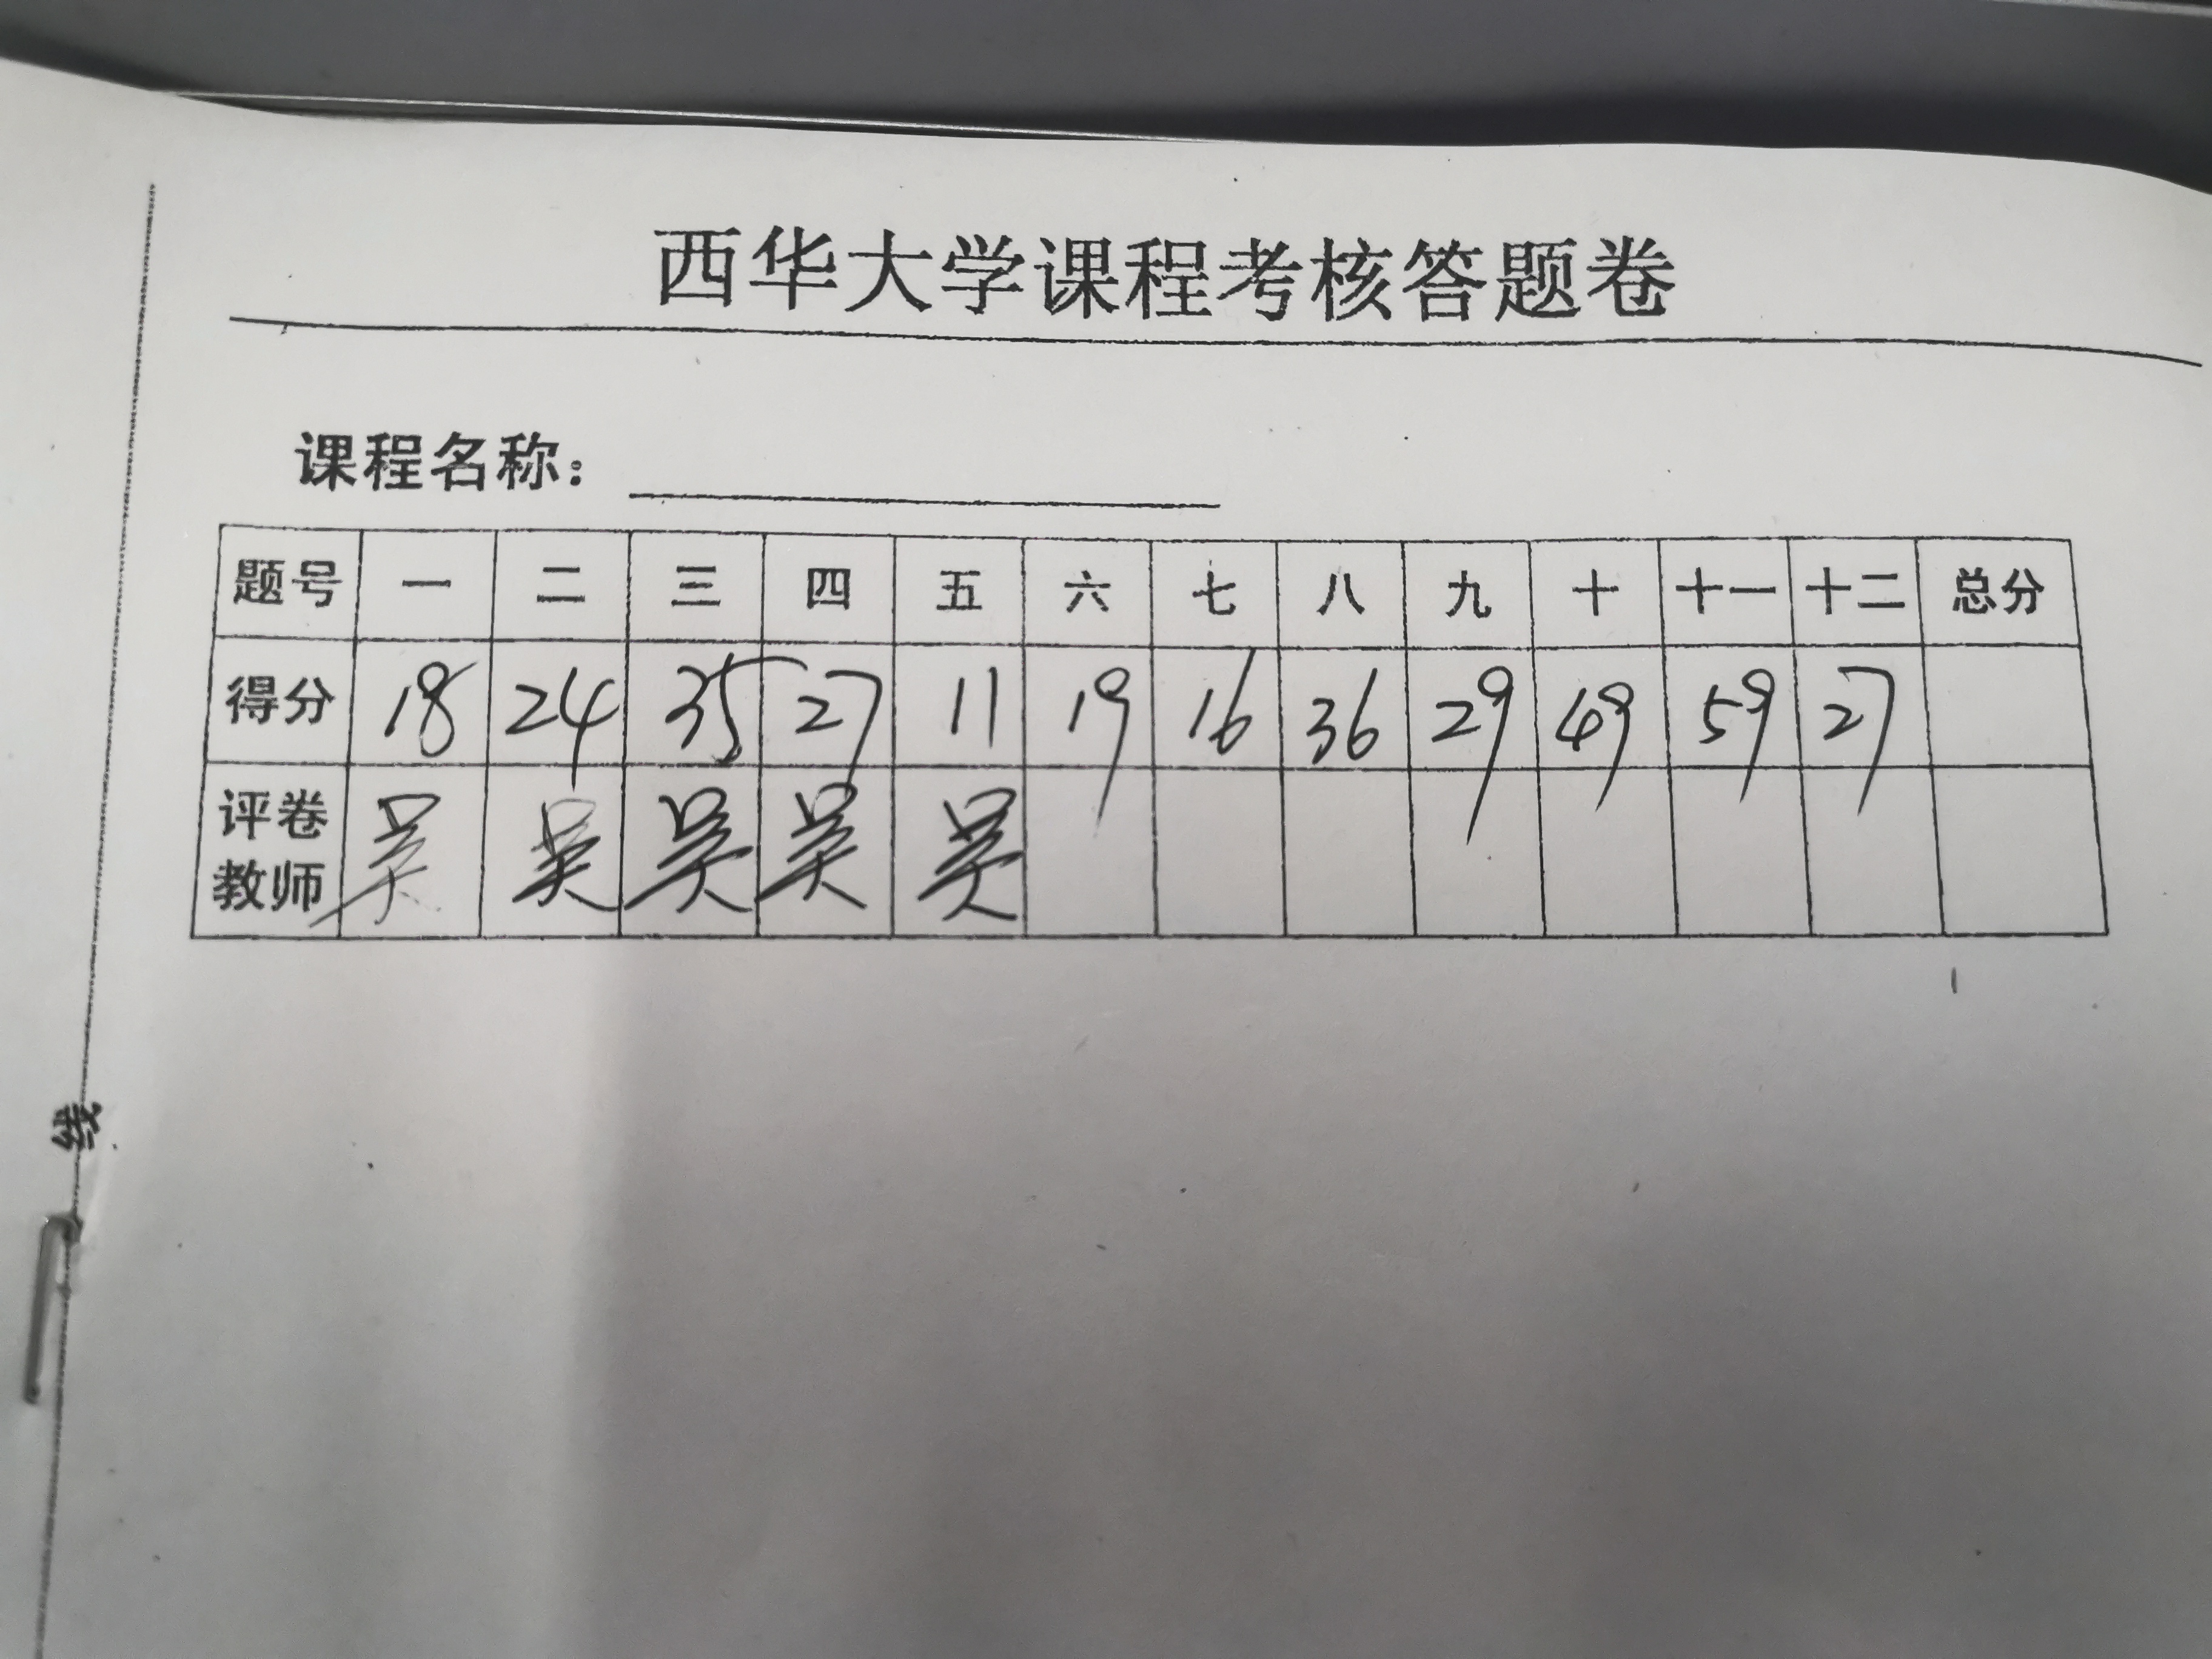 西华大学课程考核答题卷
课程名称：
题号 一 二 三 四 五 六 七 八 九 十 十一 十二 总分
得分 18 24 35 27 11 19 16 36 29 49 59 27
评卷教师 吴 吴 吴 吴 吴
线